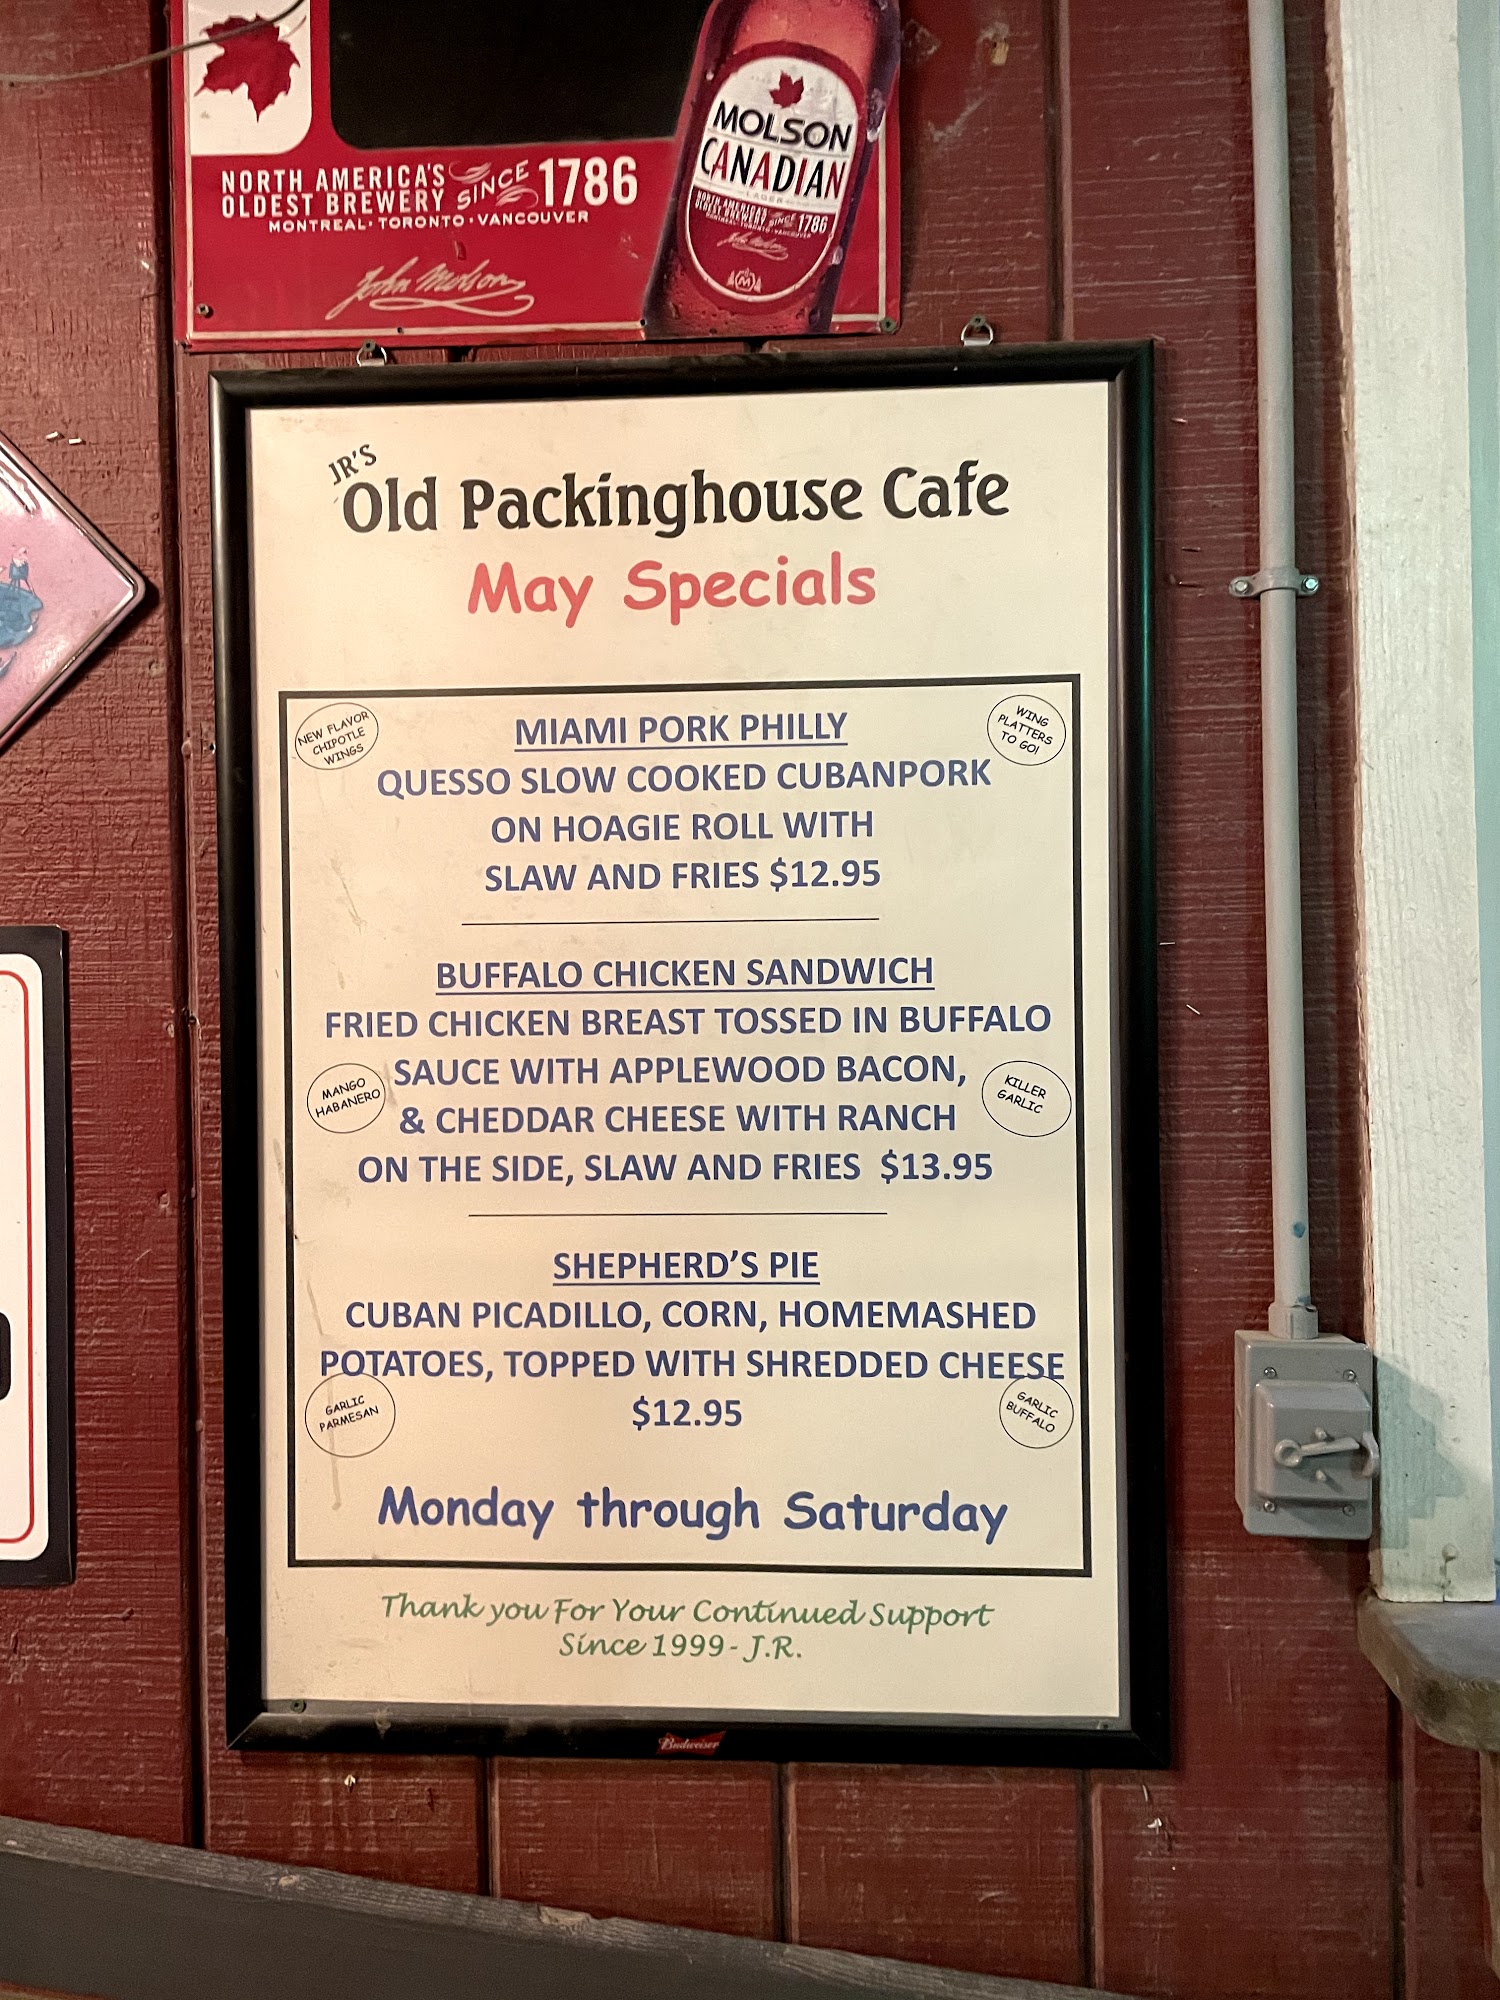 NORTH AMERICA'S
OLDEST BREWERY
SINCE 1786
MONTREAL · TORONTO · VANCOUVER
John Molson
MOLSON
CANADIAN
LAGER
NORTH AMERICA'S
OLDEST BREWERY
SINCE 1786
MONTREAL · TORONTO · VANCOUVER
John Molson
M
JR'S
Old Packinghouse Cafe
May Specials
NEW FLAVOR
CHIPOTLE
WINGS
WING
PLATTERS
TO GO!
MIAMI PORK PHILLY
QUESSO SLOW COOKED CUBANPORK
ON HOAGIE ROLL WITH
SLAW AND FRIES $12.95
BUFFALO CHICKEN SANDWICH
FRIED CHICKEN BREAST TOSSED IN BUFFALO
SAUCE WITH APPLEWOOD BACON,
& CHEDDAR CHEESE WITH RANCH
ON THE SIDE, SLAW AND FRIES $13.95
MANGO
HABANERO
KILLER
GARLIC
SHEPHERD'S PIE
CUBAN PICADILLO, CORN, HOMEMASHED
POTATOES, TOPPED WITH SHREDDED CHEESE
$12.95
GARLIC
PARMESAN
GARLIC
BUFFALO
Monday through Saturday
Thank you For Your Continued Support
Since 1999- J.R.
Budweiser